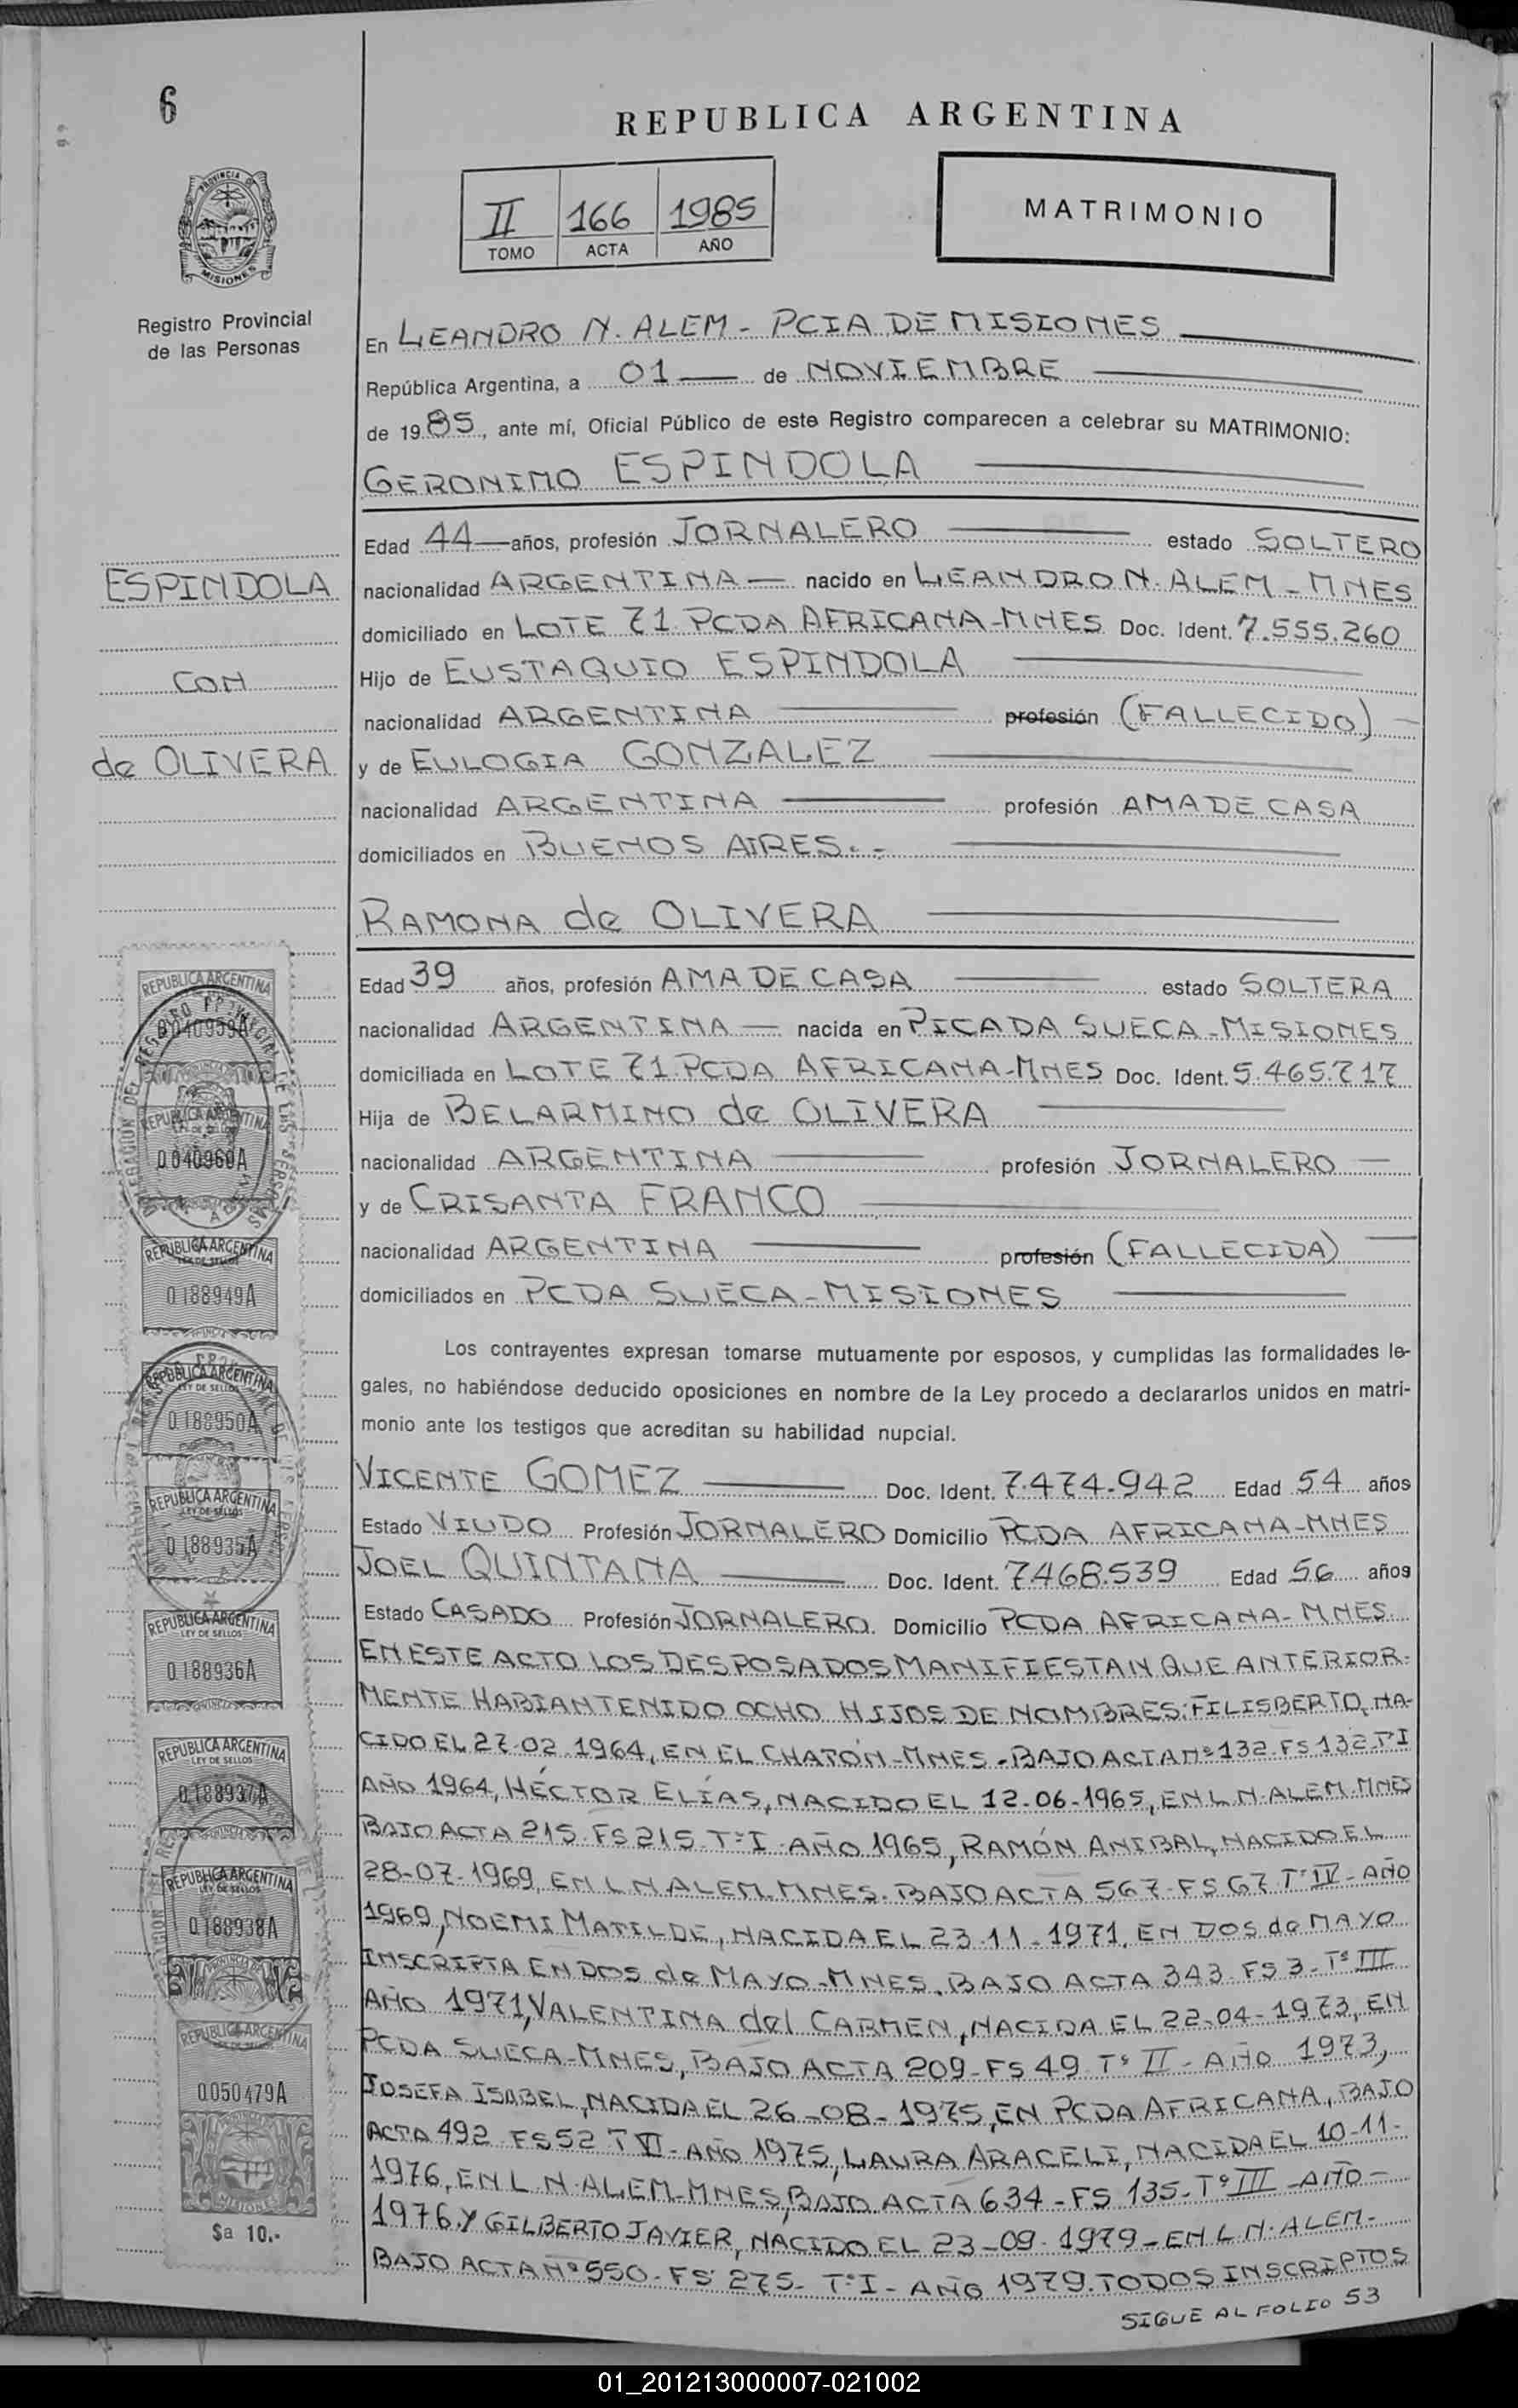 6
REPUBLICA ARGENTINA
II 166 1985
TOMO ACTA AÑO
MATRIMONIO
PROVINCIA DE
MISIONES
Registro Provincial
de las Personas
En LEANDRO N. ALEM - PCIA DE MISIONES
República Argentina, a 01 de NOVIEMBRE
de 1985, ante mí, Oficial Público de este Registro comparecen a celebrar su MATRIMONIO:
GERONIMO ESPINDOLA
Edad 44 años, profesión JORNALERO estado SOLTERO
ESPINDOLA
nacionalidad ARGENTINA nacido en LEANDRO N. ALEM - MNES
domiciliado en LOTE 71 PCDA AFRICANA - MNES Doc. Ident. 7.555.260
CON
Hijo de EUSTAQUIO ESPINDOLA
nacionalidad ARGENTINA profesión (FALLECIDO)
de OLIVERA
y de EULOGIA GONZALEZ
nacionalidad ARGENTINA profesión AMA DE CASA
domiciliados en BUENOS AIRES.-
RAMONA de OLIVERA
Edad 39 años, profesión AMA DE CASA estado SOLTERA
nacionalidad ARGENTINA nacida en PICADA SUECA - MISIONES
domiciliada en LOTE 71 PCDA AFRICANA - MNES Doc. Ident. 5.465.717
Hija de BELARMINO de OLIVERA
nacionalidad ARGENTINA profesión JORNALERO
y de CRISANTA FRANCO
nacionalidad ARGENTINA profesión (FALLECIDA)
domiciliados en PCDA SUECA - MISIONES
Los contrayentes expresan tomarse mutuamente por esposos, y cumplidas las formalidades le-
gales, no habiéndose deducido oposiciones en nombre de la Ley procedo a declararlos unidos en matri-
monio ante los testigos que acreditan su habilidad nupcial.
VICENTE GOMEZ Doc. Ident. 7.474.942 Edad 54 años
Estado VIUDO Profesión JORNALERO Domicilio PCDA AFRICANA - MNES
JOEL QUINTANA Doc. Ident. 7.468.539 Edad 56 años
Estado CASADO Profesión JORNALERO. Domicilio PCDA AFRICANA - MNES
EN ESTE ACTO LOS DESPOSADOS MANIFIESTAN QUE ANTERIOR-
MENTE HABIAN TENIDO OCHO HIJOS DE NOMBRES: FILISBERTO, NA-
CIDO EL 27-02-1964, EN EL CHATÓN - MNES - BAJO ACTA Nº 132 - FS 132 - TºI
AÑO 1964, HÉCTOR ELÍAS, NACIDO EL 12-06-1965, EN L.N. ALEM - MNES
BAJO ACTA 215 - FS 215 - TºI - AÑO 1965, RAMÓN ANIBAL, NACIDO EL
28-07-1969, EN L N ALEM - MNES. BAJO ACTA 567 - FS 67 TºIV - AÑO
1969, NOEMI MATILDE, NACIDA EL 23-11-1971, EN DOS de MAYO
INSCRIPTA EN DOS de MAYO - MNES, BAJO ACTA 343 - FS 3 - TºIII
AÑO 1971, VALENTINA del CARMEN, NACIDA EL 22-04-1973, EN
PCDA SUECA - MNES, BAJO ACTA 209 - FS 49 Tº II - AÑO 1973,
JOSEFA ISABEL, NACIDA EL 26-08-1975, EN PCDA AFRICANA, BAJO
ACTA 492 FS 52 T VI - AÑO 1975, LAURA ARACELI, NACIDA EL 10-11-
1976, EN L N. ALEM - MNES, BAJO ACTA 634 - FS 135 - Tº III - AÑO -
1976, Y GILBERTO JAVIER, NACIDO EL 23-09-1979 - EN L.N. ALEM -
BAJO ACTA Nº 550 - FS 275 - TºI - AÑO 1979. TODOS INSCRIPTOS
SIGUE AL FOLIO 53
REPUBLICA ARGENTINA
0040959A
REPUBLICA ARGENTINA
0040960A
REPUBLICA ARGENTINA
LEY DE SELLOS
0188949A
REPUBLICA ARGENTINA
LEY DE SELLOS
0188950A
REPUBLICA ARGENTINA
LEY DE SELLOS
0188935A
REPUBLICA ARGENTINA
LEY DE SELLOS
0188936A
REPUBLICA ARGENTINA
LEY DE SELLOS
0188937A
REPUBLICA ARGENTINA
LEY DE SELLOS
0188938A
REPUBLICA ARGENTINA
0050479A
MISIONES
$a 10.-
01_201213000007-021002